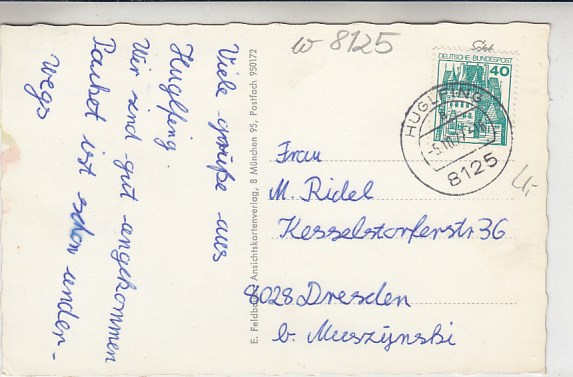 w 8125
Viele grüße aus
Huglfing.
Wir sind gut angekommen
Packet ist schon unter-
wegs
E. Feldbauer, Ansichtskartenverlag, 8 München 95, Postfach 950172
DEUTSCHE BUNDESPOST
40
HUGLFING
8125
Frau
M. Ridel
Kesselsdorferstr 36
8028 Dresden
b. Muszÿnski
4,-